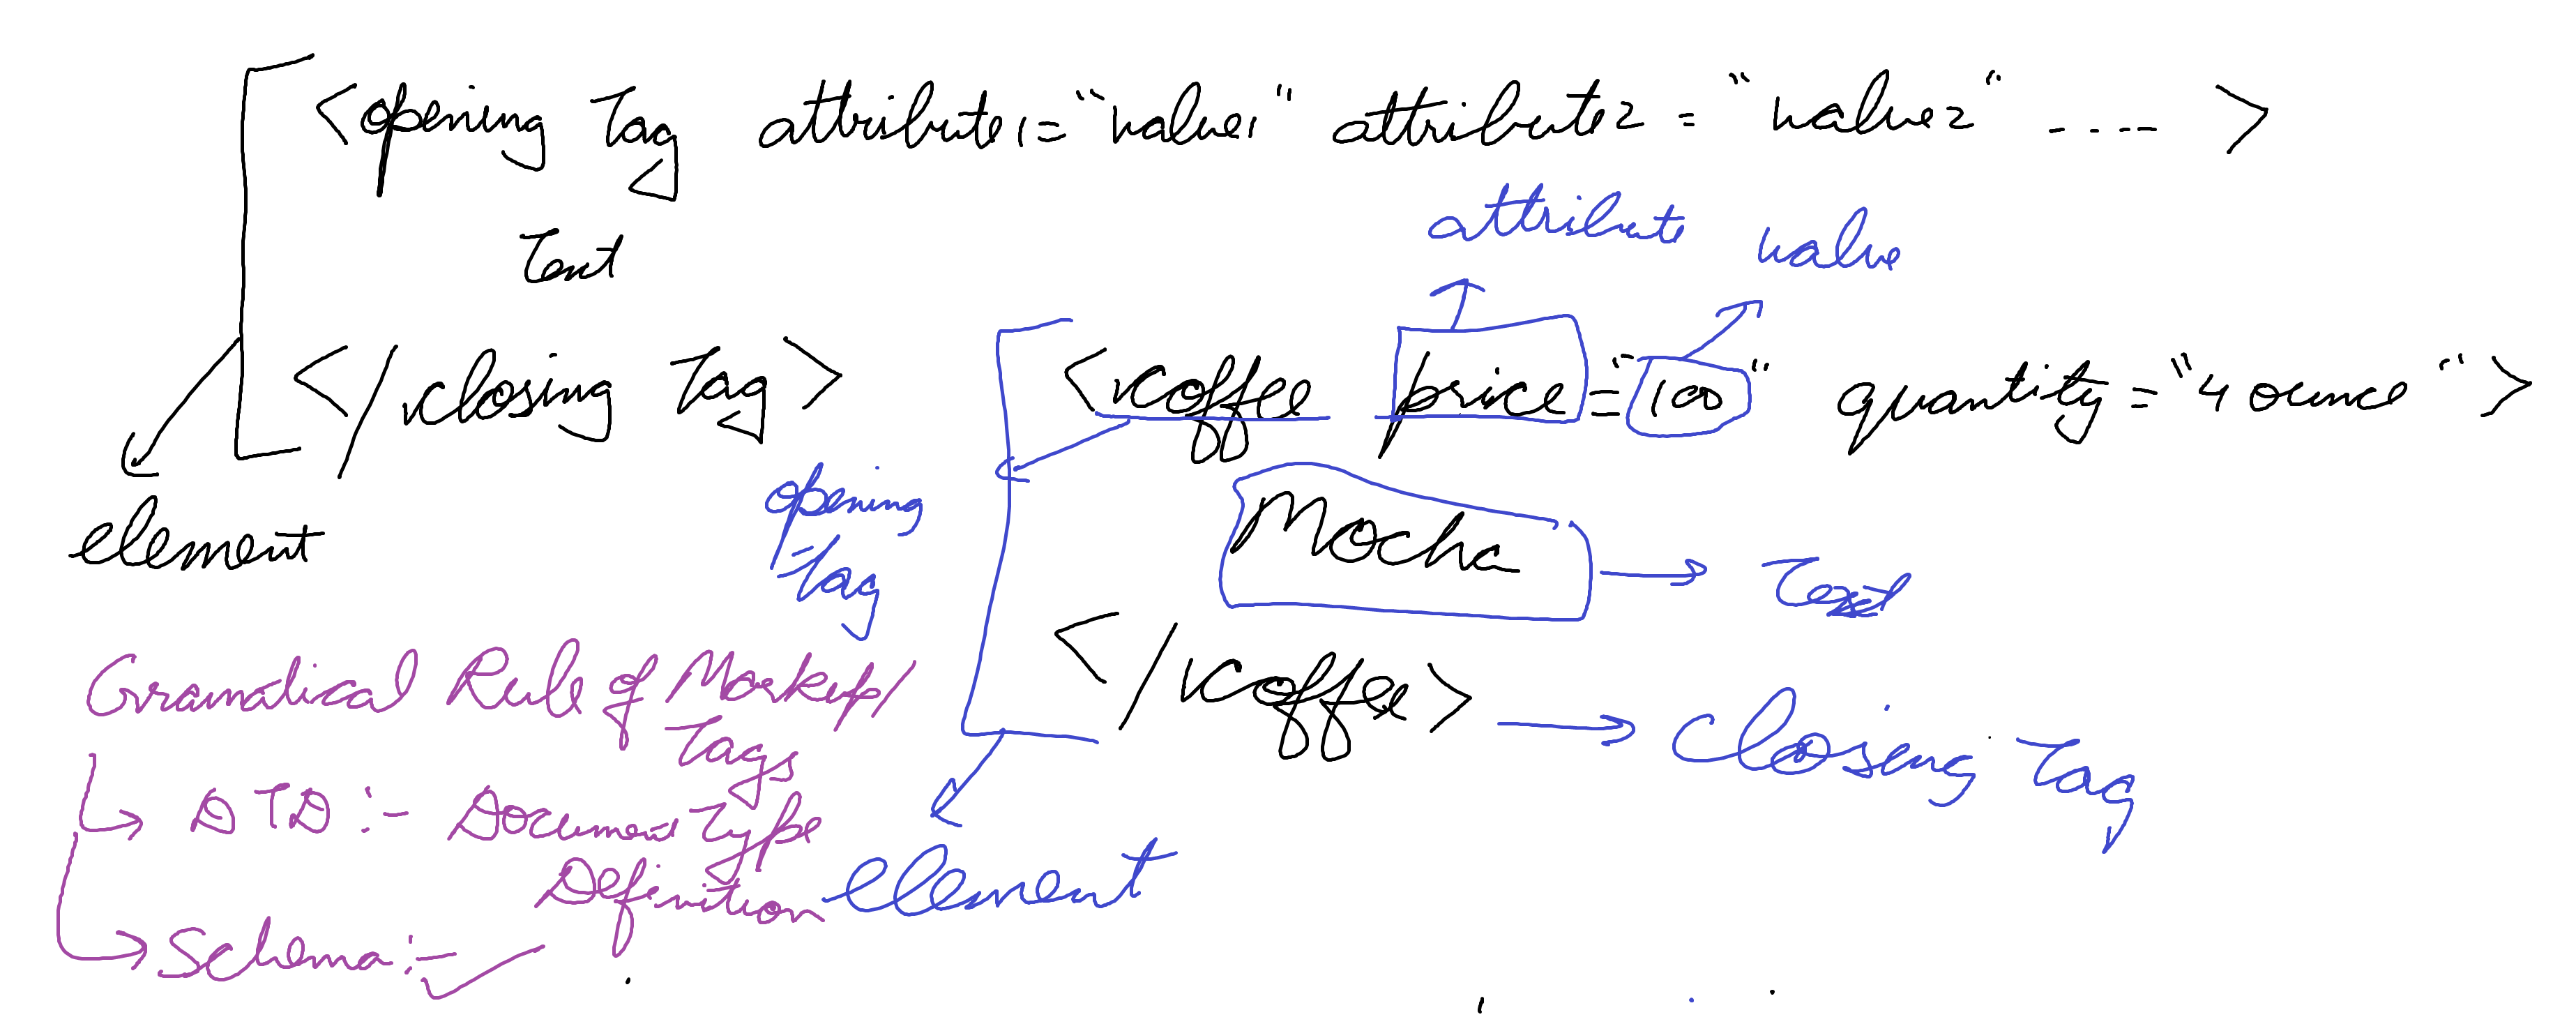 <opening Tag attribute1="value1" attribute2 = "value2" ---- >
Text
</closing Tag>
element
attribute value
<coffee price="100" quantity="4 ounce">
opening
Tag
Mocha
Text
</coffee>
closing Tag
element
Gramatical Rule of Markup/
Tags
DTD :- Document Type
Definition
Schema :-